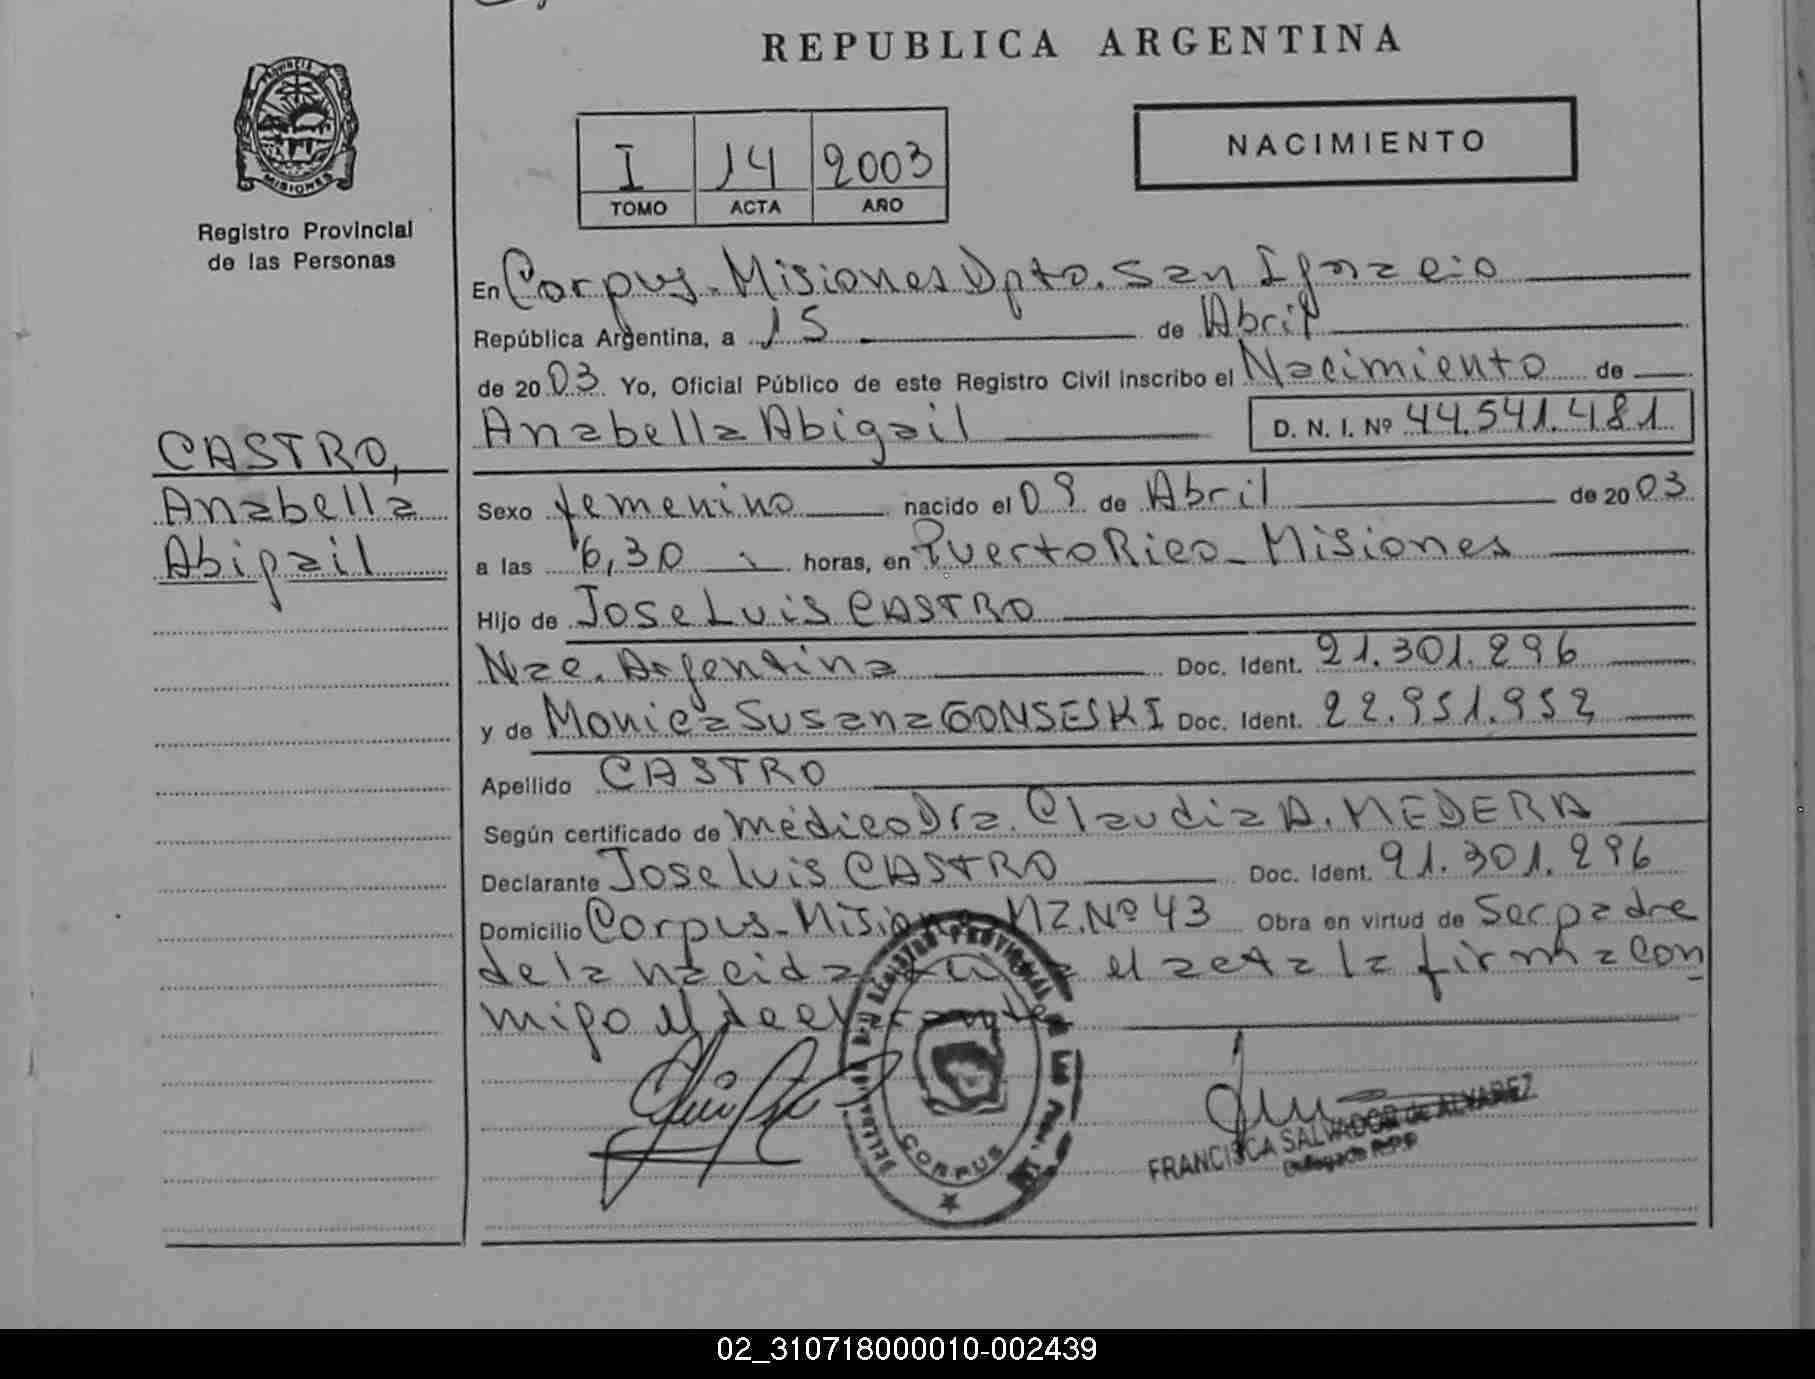 REPUBLICA ARGENTINA
PROVINCIA DE
MISIONES
Registro Provincial
de las Personas
I 14 2003
TOMO ACTA AÑO
NACIMIENTO
En Corpus - Misiones Dpto. San Ignacio
República Argentina, a 15 de Abril
de 2003 Yo, Oficial Público de este Registro Civil inscribo el Nacimiento de
Anabella Abigail D. N. I. Nº 44.541.481
CASTRO,
Anabella
Abigail
Sexo femenino nacido el 09 de Abril de 2003
a las 6,30 horas, en Puerto Rico - Misiones
Hijo de Jose Luis CASTRO
Nac. Argentina Doc. Ident. 21.301.296
y de Monica Susana GONSESKI Doc. Ident. 22.951.952
Apellido CASTRO
Según certificado de médico Dra. Claudia A. MEDERA
Declarante Jose Luis CASTRO Doc. Ident. 21.301.296
Domicilio Corpus - Misiones MZ. Nº 43 Obra en virtud de Ser padre
de la nacida el acta la firma con
migo el declarante
REGISTRO PROVINCIAL DE LAS
CORPUS
FRANCISCA SALVADOR de ALVAREZ
Delegada R.P.P
02_310718000010-002439